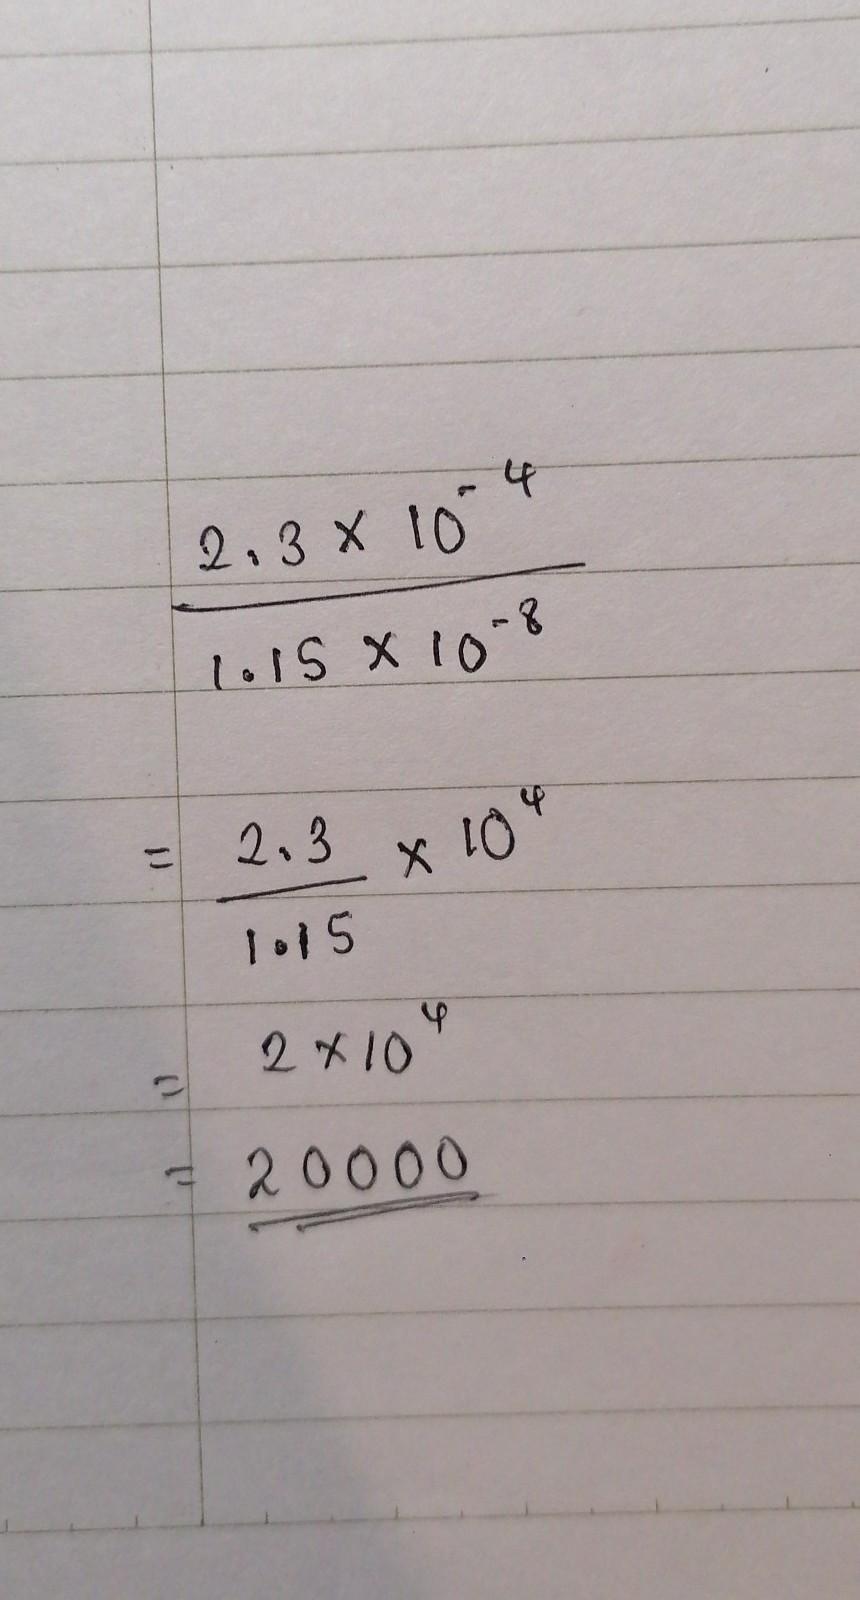 2.3 × 10⁻⁴
1.15 × 10⁻⁸
= 2.3 × 10⁴
1.15
= 2 × 10⁴
= 20000